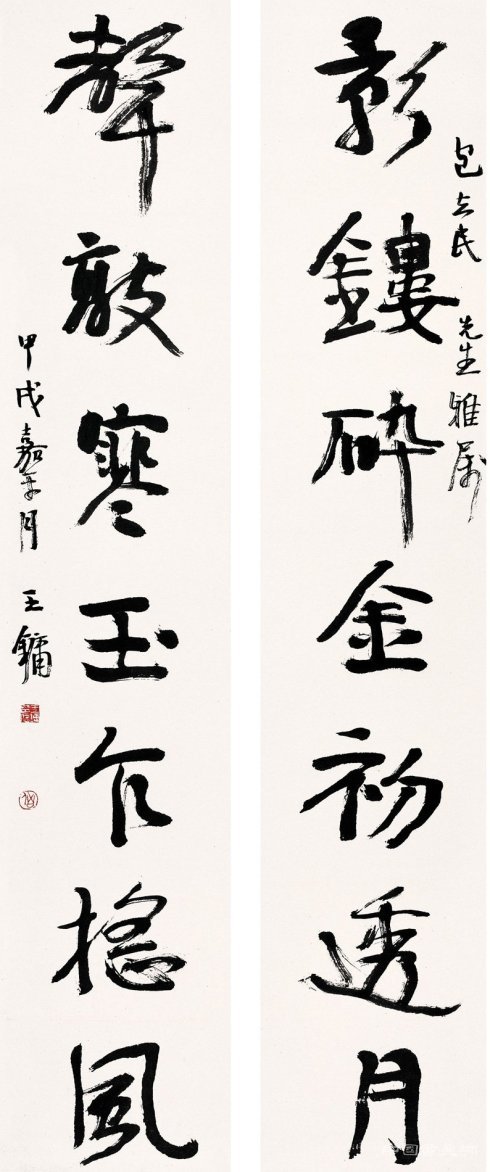 包立民 先生雅属
影鏤碎金初透月
聲敲寒玉乍搖風
甲戌嘉平月 王鏞